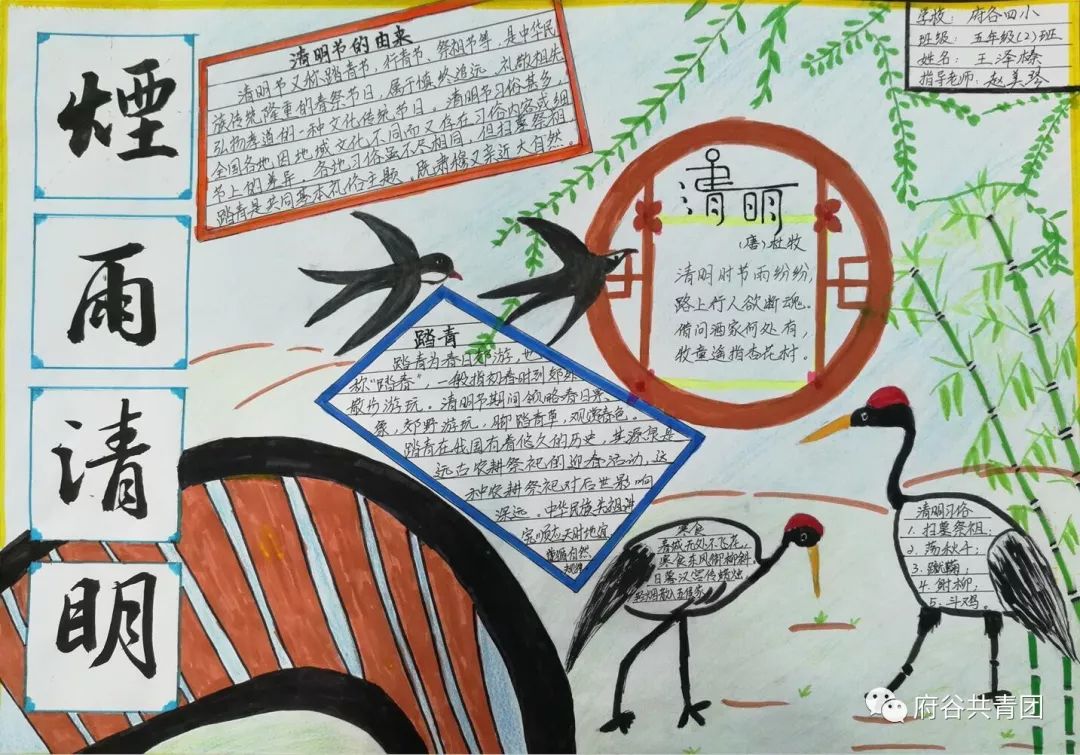 煙
雨
清
明
清明节的由来
清明节又称踏青节，行青节、祭祖节等，是中华民
族传统隆重的春祭节日，属于慎终追远、礼敬祖先、
弘扬孝道的一种文化传统节日。清明节习俗甚多，
全国各地因地域文化不同而又存在习俗内容或细
节上的差异，各地习俗虽不尽相同，但扫墓祭祖、
踏青是共同基本礼俗主题。既肃穆又亲近大自然。
学校：府谷四小
班级：五年级(2)班
姓名：王泽榛
指导老师：赵美琴
清明
（唐）杜牧
清明时节雨纷纷，
路上行人欲断魂。
借问酒家何处有，
牧童遥指杏花村。
踏青
踏青为春日郊游，也
称“踏春”，一般指初春时到郊外
散步游玩。清明节期间领略春日景
象，郊野游玩，脚踏青草，观溪春色。
踏青在我国有着悠久的历史，其源很是
远古农耕祭祀的迎春活动，这
种农耕祭祀对后世影响
深远。中华民族先祖进
天时地宜
自然
规律
寒食
春城无处不飞花，
寒食东风御柳斜。
日暮汉宫传蜡烛，
轻烟散入五侯家。
清明习俗
1. 扫墓祭祖；
2. 荡秋千；
3. 蹴鞠；
4. 射柳；
5. 斗鸡。
府谷共青团